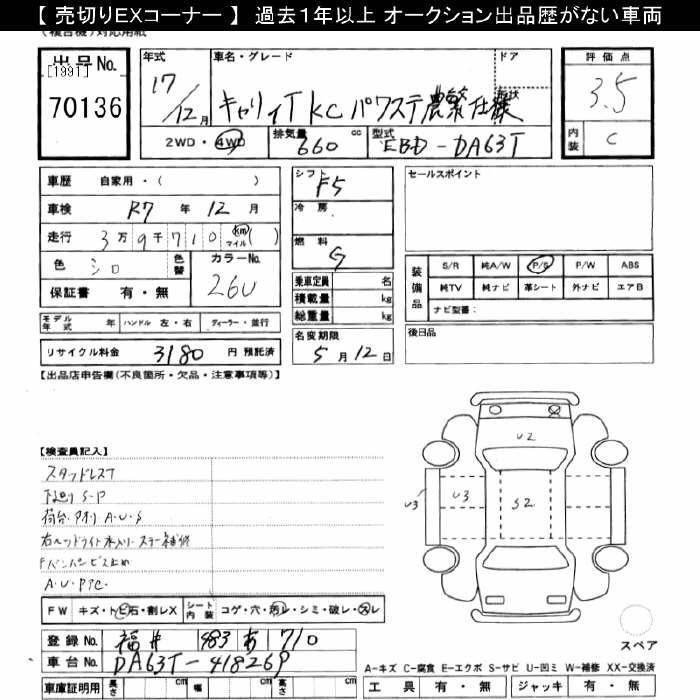 【 売切りEXコーナー 】 過去1年以上 オークション出品歴がない車両
出品No.
[1991]
70136
年式
17/12月
車名・グレード
キャリィT KC パワステ農繁仕様
ドア
形状
評価点
3.5
内装
C
2WD・4WD
排気量
660
cc
型式
EBD-DA63T
車歴 自家用・( )
車検 R7年12月
走行 3万9千710 km マイル( )
色 シロ
色替
カラーNo.
26U
保証書 有・無
シフト
F5
冷房
燃料
G
乗車定員 名
積載量 kg
総重量 kg
セールスポイント
装備品
S/R 純A/W P/S P/W ABS
純TV 純ナビ 革シート 外ナビ エアB
ナビ型番:
モデル年式 年 ハンドル 左・右 ディーラー・並行
リサイクル料金 3180 円 預託済
名変期限
5月12日
後日品
【出品店申告欄(不良箇所・欠品・注意事項等)】
【検査員記入】
スタッドレスT
下廻り S・P
荷台・アオリ A・U・S
右ヘッドライト水入り
FバンパービスIEめ
A・U・P
U2
U3
U3
S2
FW キズ・トビ石・割レX
シート内装 コゲ・穴・汚レ・シミ・破レ・スレ
登録No. 福井 483 あ 710
車台No. DA63T-418269
車庫証明用 長さ cm 幅 cm 高さ cm
スペア
A-キズ C-腐食 E-エクボ S-サビ U-凹ミ W-補修 XX-交換済
工具 有・無 ジャッキ 有・無